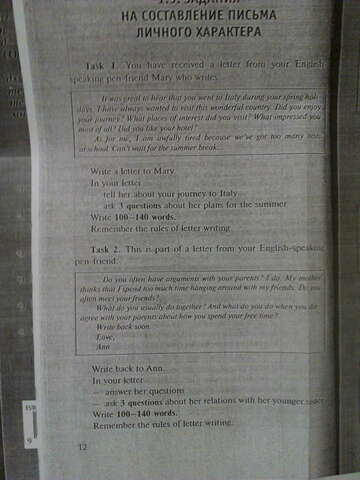 1.3. ЗАДАНИЯ
НА СОСТАВЛЕНИЕ ПИСЬМА
ЛИЧНОГО ХАРАКТЕРА
Task 1. You have received a letter from your English-
speaking pen-friend Mary who writes
It was great to hear that you went to Italy during your spring holi-
days. I have always wanted to visit this wonderful country. Did you enjoy
your journey? What places of interest did you visit? What impressed you
most of all? Did you like your hotel?
As for me, I am awfully tired because we've got too many tests
at school. Can't wait for the summer break...
Write a letter to Mary.
In your letter
tell her about your journey to Italy
ask 3 questions about her plans for the summer
Write 100–140 words.
Remember the rules of letter writing.
Task 2. This is part of a letter from your English-speaking
pen-friend.
...Do you often have arguments with your parents? I do. My mother
thinks that I spend too much time hanging around with my friends. Do you
often meet your friends?
What do you usually do together? And what do you do when you dis-
agree with your parents about how you spend your free time?
Write back soon.
Love,
Ann
Write back to Ann.
In your letter
— answer her questions
— ask 3 questions about her relations with her younger sister
Write 100–140 words.
Remember the rules of letter writing.
12